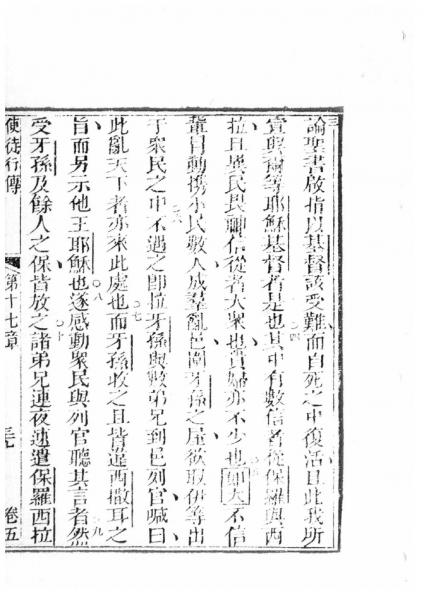 論聖書啟指以基督該受難而自死之中復活且此我所
宣與爾等耶穌基督者是也其中有數信者從保羅與西
拉且異民畏神信從者大眾也貴婦亦不少也如大不信
輩自動攜小民數人成羣亂邑圍牙孫之屋欲取伊等出
于眾民之中不遇之卽拉牙孫與數弟兄到邑列官喊曰
此亂天下者亦來此處也而牙孫收之且皆違西撒耳之
旨而另示他王耶穌也遂感動眾民與列官聽基言者然
受牙孫及餘人之保皆放之諸弟兄連夜速遣保羅西拉
使徒行傳 第十七章 卷五